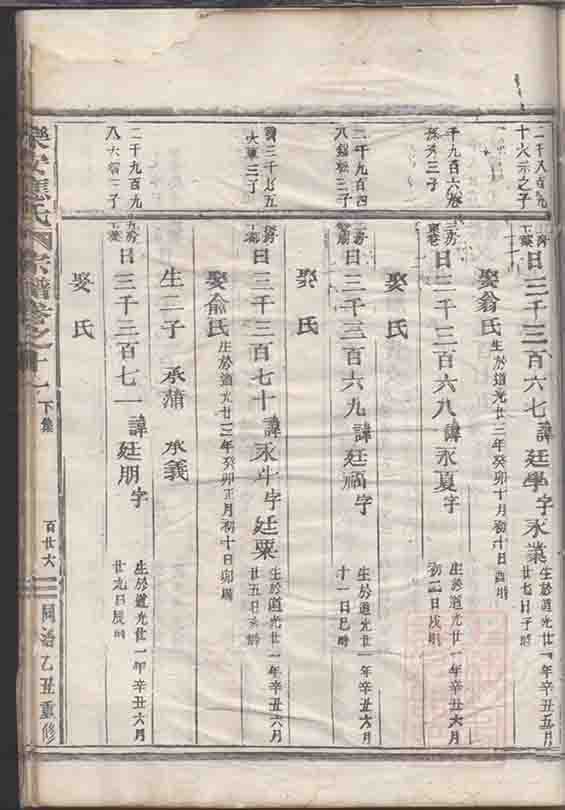 二千八百九
十六 之子
曰三千三百六七諱廷學字永業
生於道光廿一年辛丑五月
廿七日子時
娶翁氏
生於道光廿三年癸卯十月初十日酉時
千九百六
三子
曰三千三百六八諱永夏字
生於道光廿一年辛丑六月
初二日戌時
娶氏
二千九百四
八 三子
曰三千三百六九諱廷福字
生於道光廿一年辛丑六月
十一日巳時
娶氏
三千七五
三子
曰三千三百七十諱永斗字廷粟
生於道光廿一年辛丑六月
廿五日 時
娶俞氏
生於道光廿三年癸卯正月初十日卯時
生二子 承蒲 承義
二千九百九
八 三子
曰三千三百七一諱廷朋字
生於道光廿一年辛丑六月
廿九日辰時
娶氏
樂安 氏 宗譜卷之十 下集
百廿六
同治乙丑重修